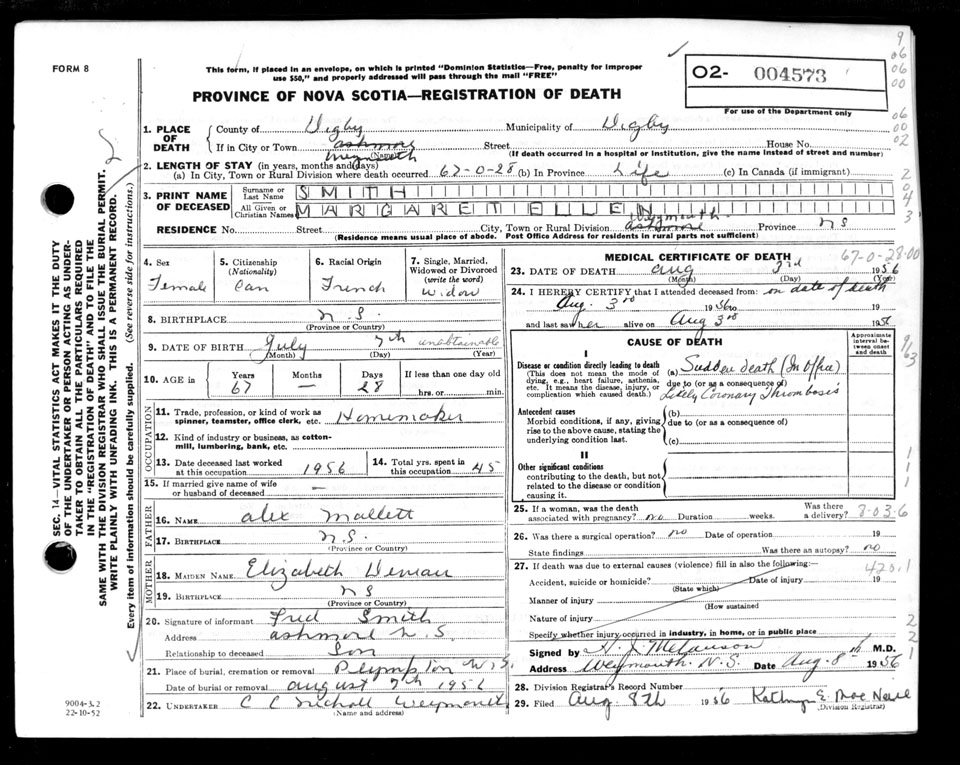 FORM 8
This form, if placed in an envelope, on which is printed "Dominion Statistics—Free, penalty for improper
use $50," and properly addressed will pass through the mail "FREE"
PROVINCE OF NOVA SCOTIA—REGISTRATION OF DEATH
02- 004573
For use of the Department only
1. PLACE OF DEATH { County of Digby Municipality of Digby
If in City or Town Ashmore Street House No.
Weymouth (Name) (If death occurred in a hospital or institution, give the name instead of street and number)
2. LENGTH OF STAY (in years, months and days)
(a) In City, Town or Rural Division where death occurred 67-0-28 (b) In Province Life (c) In Canada (if immigrant)
3. PRINT NAME OF DECEASED { Surname or Last Name SMITH
All Given or Christian Names MARGARET ELLEN
Weymouth
RESIDENCE No. Street City, Town or Rural Division Ashmore Province NS
(Residence means usual place of abode. Post Office Address for residents in rural parts not sufficient)
4. Sex Female
5. Citizenship (Nationality) Can
6. Racial Origin French
7. Single, Married, Widowed or Divorced (write the word) Widow
8. BIRTHPLACE N.S.
(Province or Country)
9. DATE OF BIRTH July 7th unobtainable
(Month) (Day) (Year)
10. AGE in Years 67 Months — Days 28 If less than one day old hrs. or min.
OCCUPATION
11. Trade, profession, or kind of work as spinner, teamster, office clerk, etc. Homemaker
12. Kind of industry or business, as cotton-mill, lumbering, bank, etc.
13. Date deceased last worked at this occupation 1956
14. Total yrs. spent in this occupation 45
15. If married give name of wife or husband of deceased —
FATHER
16. NAME Alex Mallett
17. BIRTHPLACE N.S.
(Province or Country)
MOTHER
18. MAIDEN NAME Elizabeth
19. BIRTHPLACE NS
(Province or Country)
20. Signature of informant Fred Smith
Address Ashmore N.S.
Relationship to deceased Son
21. Place of burial, cremation or removal Plympton N.S.
Date of burial or removal August 7th 1956
22. UNDERTAKER C C Nichall Weymouth
(Name and address)
9004-3.2
22-10-52
MEDICAL CERTIFICATE OF DEATH
67-0-28.00
23. DATE OF DEATH Aug 3rd 1956
(Month) (Day) (Year)
24. I HEREBY CERTIFY that I attended deceased from: on date of death
Aug. 3rd 1956 to 19
and last saw her alive on Aug 3rd 1956
CAUSE OF DEATH
Approximate interval between onset and death
I
Disease or condition directly leading to death
(This does not mean the mode of dying, e.g., heart failure, asthenia, etc. It means the disease, injury, or complication which caused death.)
(a) Sudden death (In Office)
due to (or as a consequence of)
Likely Coronary Thrombosis
Antecedent causes
Morbid conditions, if any, giving rise to the above cause, stating the underlying condition last.
(b)
due to (or as a consequence of)
(c)
II
Other significant conditions
contributing to the death, but not related to the disease or condition causing it.
25. If a woman, was the death associated with pregnancy? no Duration weeks. Was there a delivery? 8-03-6
26. Was there a surgical operation? no Date of operation 19
State findings Was there an autopsy? no
27. If death was due to external causes (violence) fill in also the following:— 420.1
Accident, suicide or homicide? Date of injury 19
(State which)
Manner of injury
(How sustained
Nature of injury
Specify whether injury occurred in industry, in home, or in public place
Signed by M.D.
Address Weymouth N.S. Date Aug. 8th 1956
28. Division Registrar's Record Number
29. Filed Aug. 8th 1956 Kathryn E. MacNeill
(Division Registrar)
SEC. 14—VITAL STATISTICS ACT MAKES IT THE DUTY
OF THE UNDERTAKER OR PERSON ACTING AS UNDER-
TAKER TO OBTAIN ALL THE PARTICULARS REQUIRED
IN THE "REGISTRATION OF DEATH" AND TO FILE THE
SAME WITH THE DIVISION REGISTRAR WHO SHALL ISSUE THE BURIAL PERMIT.
WRITE PLAINLY WITH UNFADING INK. THIS IS A PERMANENT RECORD.
Every item of information should be carefully supplied. (See reverse side for instructions.)